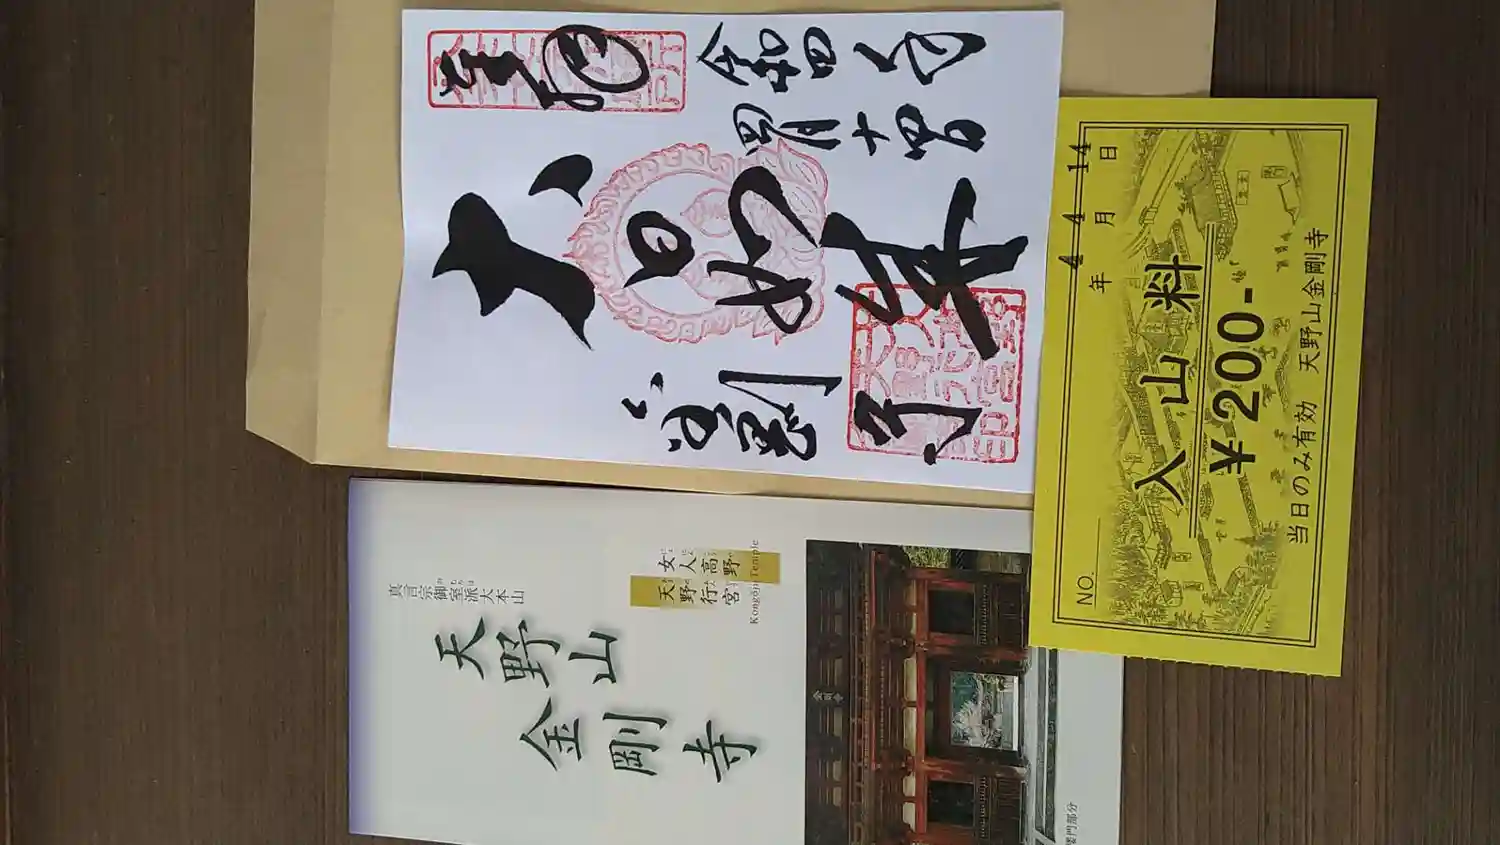 奉拝
令和四年
四月十四日
大日如来
金剛寺
真言宗御室派大本山
天野山
金剛寺
女人高野
天野行宮
Kongōji Temple
楼門部分
NO.
4年4月14日
入山料
¥200-
当日のみ有効 天野山金剛寺